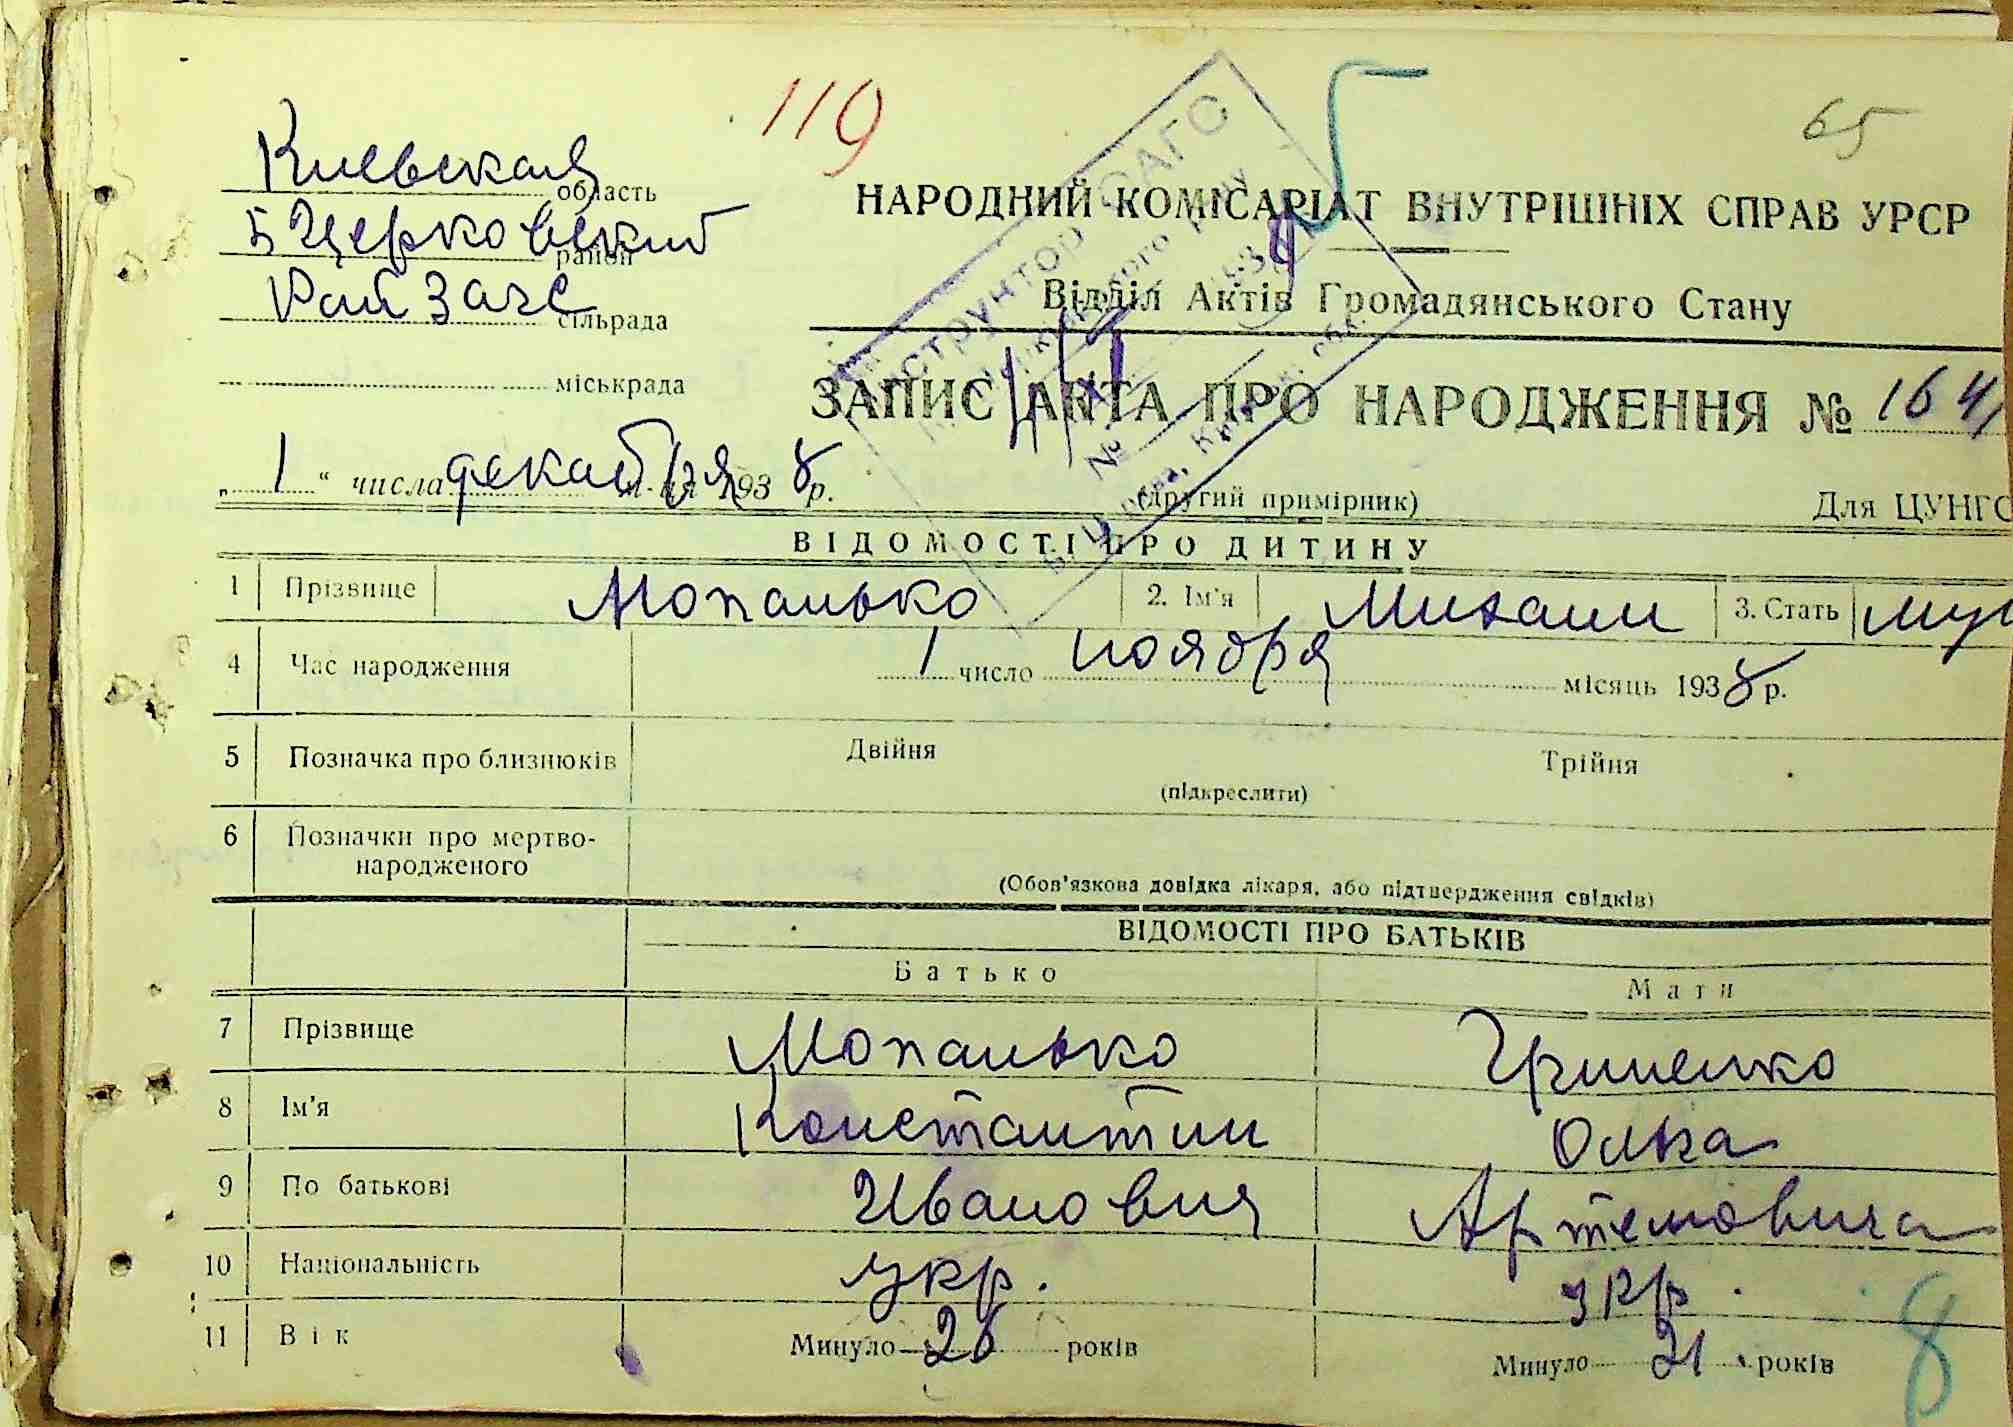 119
65
Киевская область
НАРОДНИЙ КОМІСАРІАТ ВНУТРІШНІХ СПРАВ УРСР
БЦерковский район
Відділ Актів Громадянського Стану
Рай Загс сільрада
міськрада
ЗАПИС АКТА ПРО НАРОДЖЕННЯ № 1641
„ 1 “ числа декабря м-ця 1938 р.
(другий примірник)
Для ЦУНГО
ВІДОМОСТІ ПРО ДИТИНУ
1 Прізвище Мопанько 2. Ім'я Михаил 3. Стать муж
4 Час народження 1 число ноября місяць 1938 р.
5 Позначка про близнюків Двійня Трійня
(підкреслити)
6 Позначки про мертво-
народженого
(Обов'язкова довідка лікаря, або підтвердження свідків)
ВІДОМОСТІ ПРО БАТЬКІВ
Батько Мати
7 Прізвище Мопанько Гриненко
8 Ім'я Константин Олька
9 По батькові Иванович Артемовича
10 Національність укр. укр.
11 Вік Минуло 26 років Минуло 21 років
8